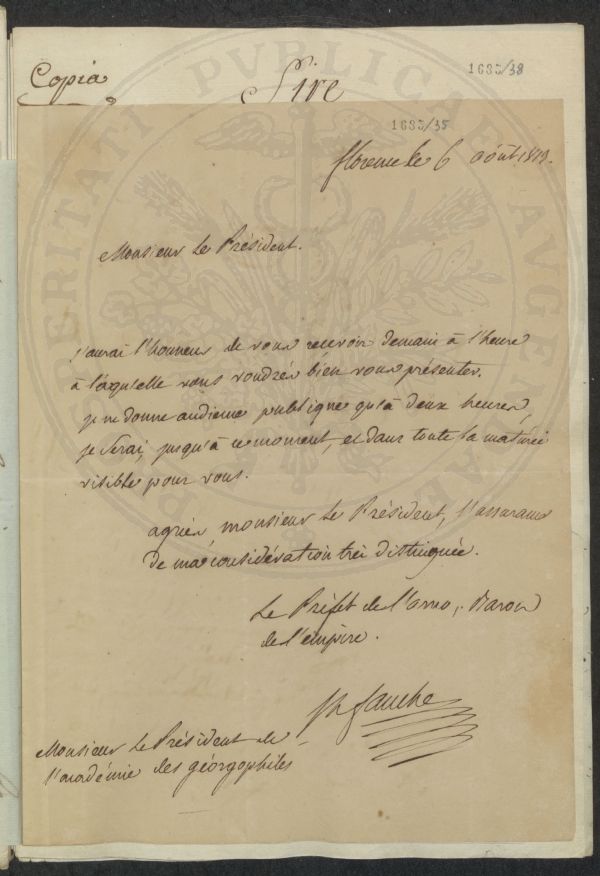 Copia
Sire
1683/38
1683/35
florence le 6 août 1809.
Monsieur le Président.
j'aurai l'honneur de vous recevoir demain à l'heure
à laquelle vous voudrés bien vous présenter.
je ne donne audience publique qu'à deux heures,
je serai, jusqu'à ce moment, et dans toute la matinée
visible pour vous.
agréés monsieur le Président, l'assurance
de ma considération très distinguée.
Le Préfet de l'arno, Baron
de l'empire.
fauche
Monsieur le Président de
l'académie des géorgophiles
PROSPERITATI PVBLICAE AVGENDAE